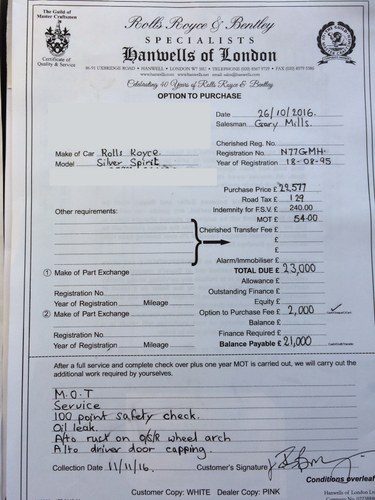 The Guild of
Master Craftsmen
Certificate of
Quality & Service
Rolls Royce & Bentley
SPECIALISTS
Hanwells of London
Celebrating 40 Years of Rolls Royce & Bentley
OPTION TO PURCHASE
Date 26/10/2016.
Salesman Gary Mills.
Cherished Reg. No.
Make of Car Rolls Royce
Registration No. N77GMH
Model Silver Spirit
Year of Registration 18-08-95
Purchase Price £ 22,577
Road Tax £ 129
Other requirements:
Indemnity for F.S.V. £ 240.00
MOT £ 54.00
Cherished Transfer Fee £
£
£
Alarm/Immobiliser £
1 Make of Part Exchange
TOTAL DUE £ 23,000
Allowance £
Registration No
Outstanding Finance £
Year of Registration Mileage
Equity £
2 Make of Part Exchange
Option to Purchase Fee £ 2,000
Balance £
Registration No
Finance Required £
Year of Registration Mileage
Balance Payable £ 21,000
After a full service and complete check over plus one year MOT is carried out, we will carry out the
additional work required by yourselves.
M.O.T
Service
100 point safety check.
Oil leak.
Atto rust on O/S/R wheel arch
Alto driver door capping.
Collection Date 11/11/16.
Customer's Signature
Conditions overleaf
Customer Copy: WHITE Dealer Copy: PINK
Hanwells of London